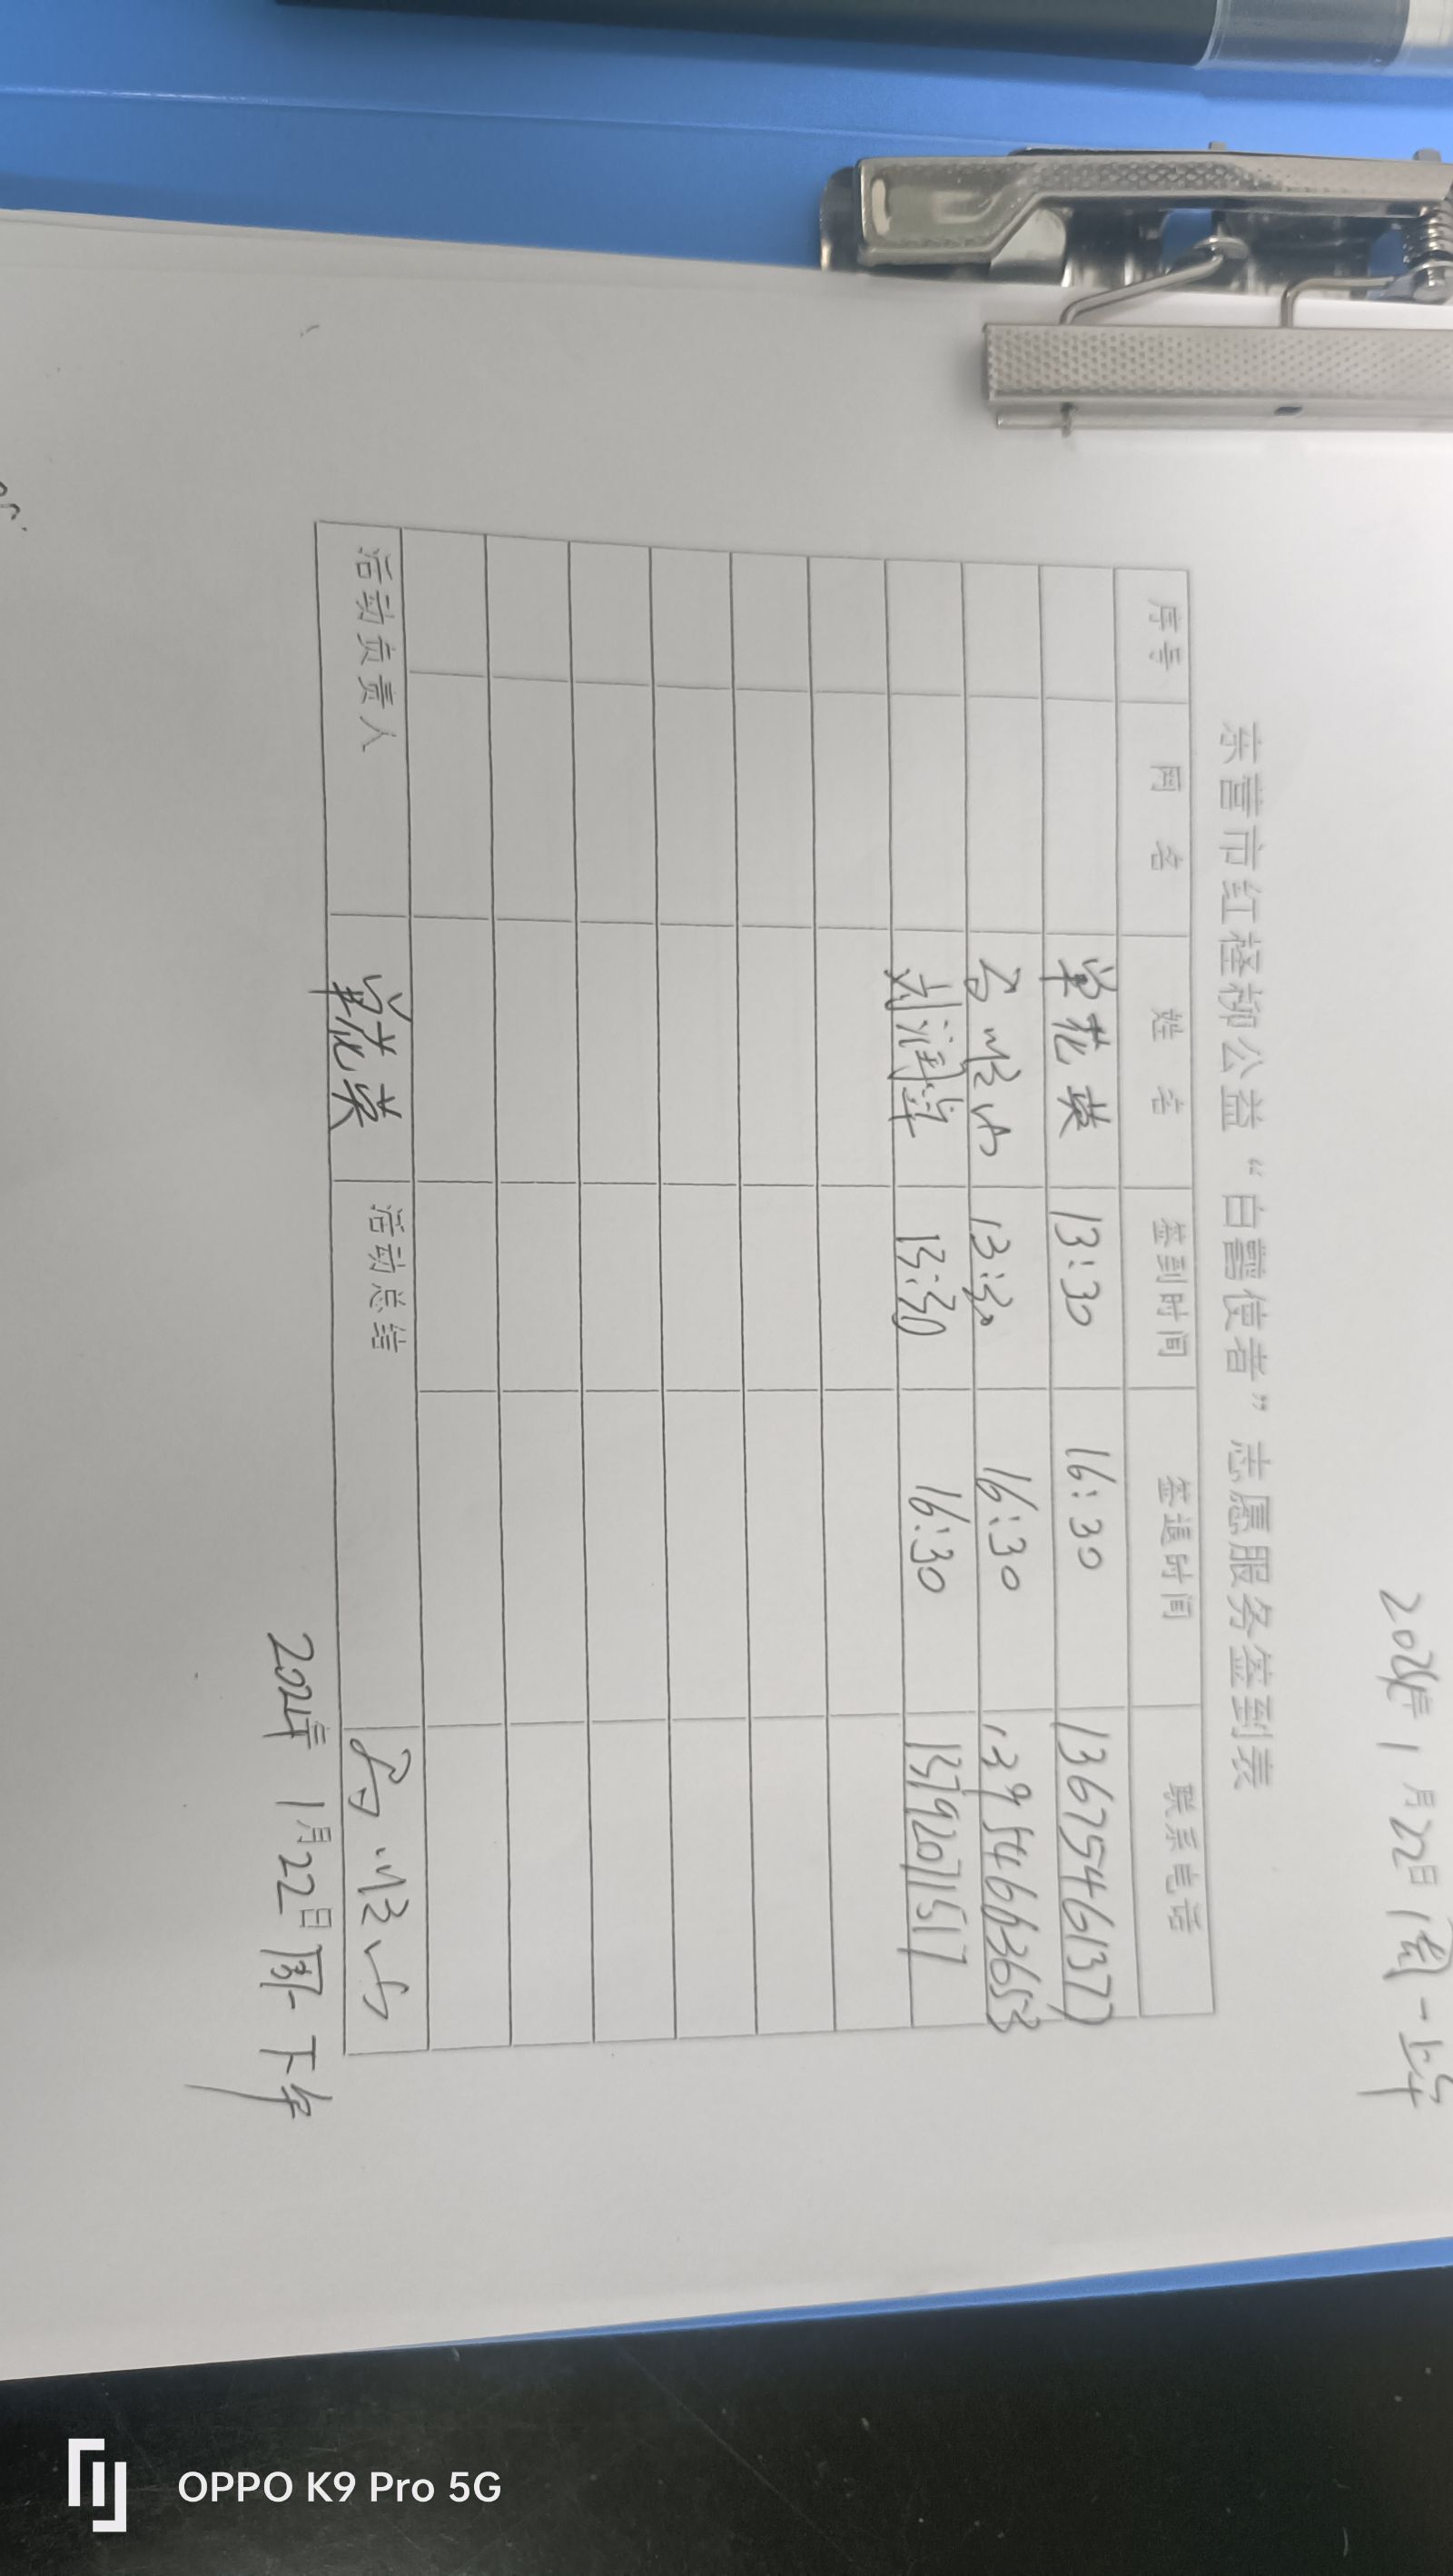 2024年1月22日周一上午
东营市红柽柳公益“白鹭使者”志愿服务签到表
序号 网名 姓名 签到时间 签退时间 联系电话
单花英 13:30 16:30 13675461377
13:30 16:30 13954663653
刘润萍 13:30 16:30 13792071517
活动负责人 单花英 活动总结
2024年1月22日周一下午
OPPO K9 Pro 5G